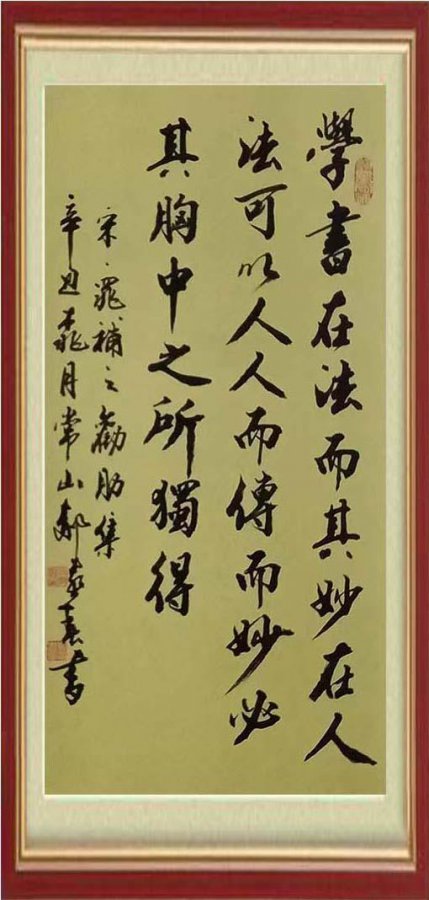 學書在法而其妙在人
法可以人人而傳而妙必
其胸中之所獨得
宋、晁補之肋集
辛丑桃月常山郝書